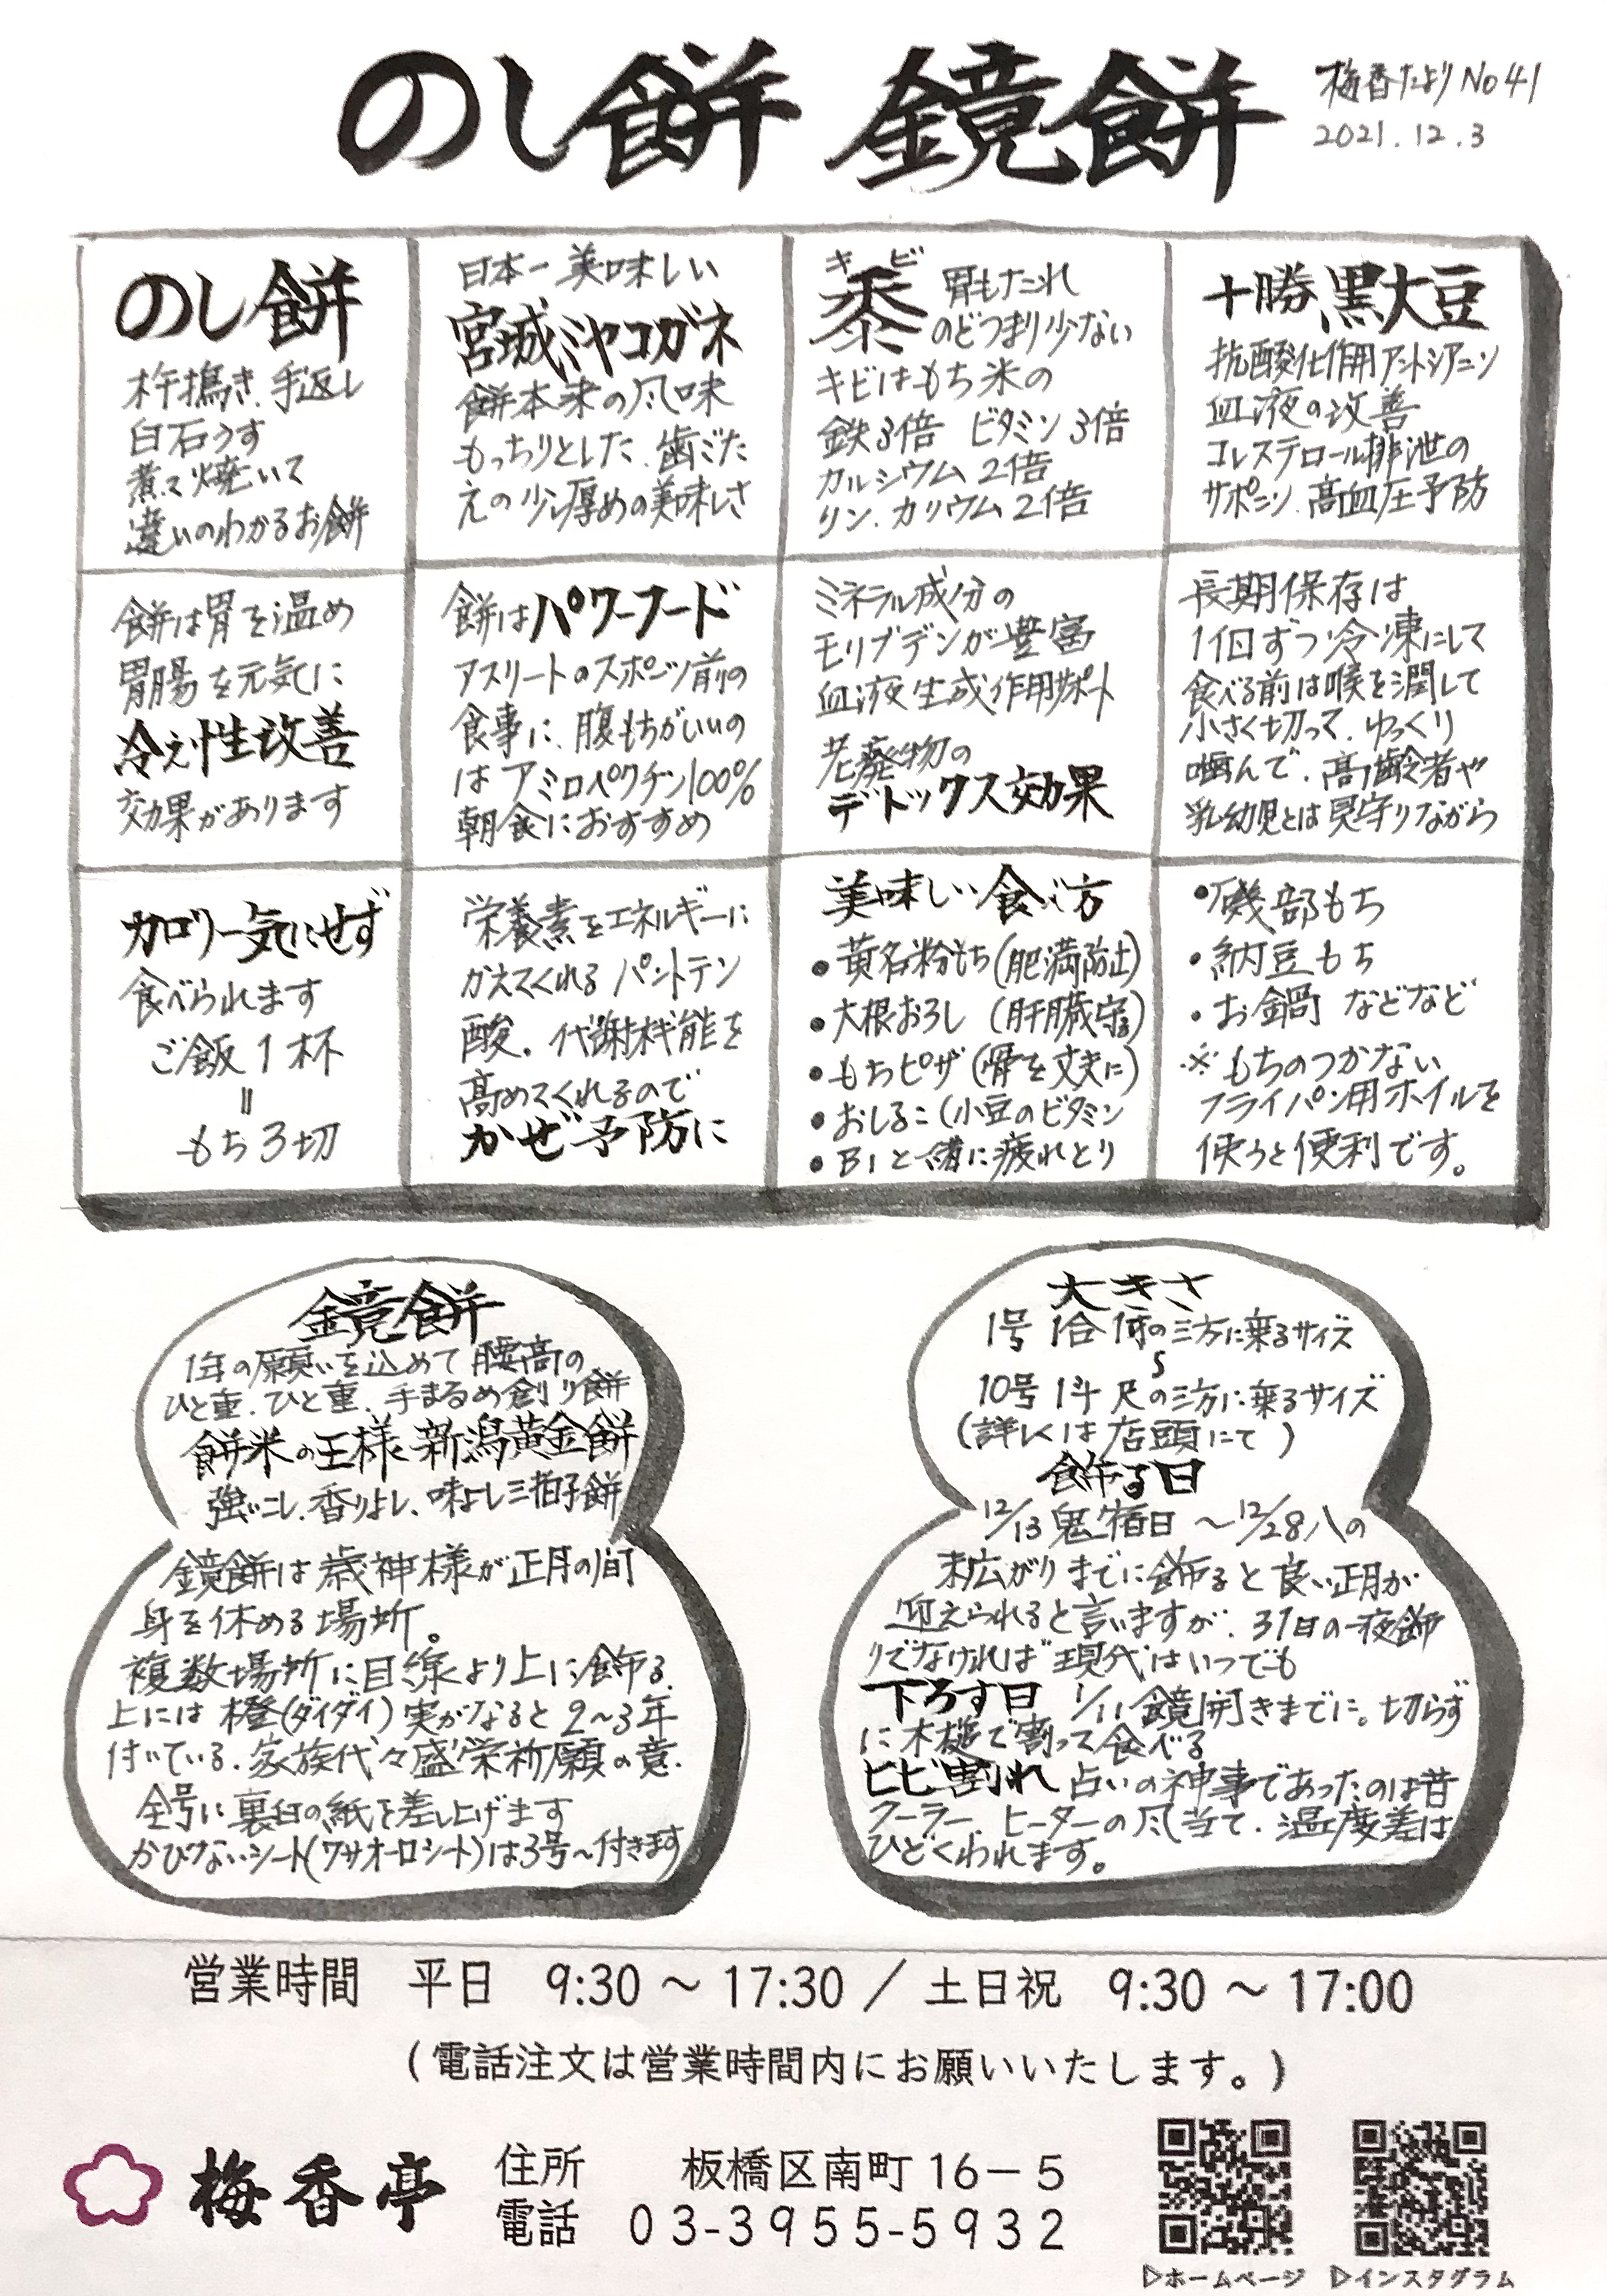 のし餅 鏡餅
梅香だより No 41
2021.12.3
のし餅
杵搗き、手返し
臼石うす
煮て焼いて
違いのわかるお餅
日本一美味しい
宮城ミヤコガネ
餅本来の風味
もっちりとした、歯ごた
えの少し厚めの美味しさ
キビ
黍 胃もたれ
のどつまり少ない
キビはもち米の
鉄3倍 ビタミン3倍
カルシウム2倍
リン、カリウム2倍
十勝黒大豆
抗酸化作用アントシアニン
血液の改善
コレステロール排泄の
サポニン、高血圧予防
餅は胃を温め
胃腸を元気に
冷え性改善
効果があります
餅はパワーフード
アスリートのスポーツ前の
食事に、腹もちがいいの
はアミロペクチン100%
朝食におすすめ
ミネラル成分の
モリブデンが豊富
血液生成作用サポート
老廃物の
デトックス効果
長期保存は
1個ずつ冷凍にして
食べる前は喉を潤して
小さく切って、ゆっくり
噛んで、高齢者や
乳幼児とは見守りながら
カロリー気にせず
食べられます
ご飯1杯
=
もち3切
栄養素をエネルギーに
かえてくれる パントテン
酸。代謝機能を
高めてくれるので
かぜ予防に
美味しい食べ方
•黄名粉もち(肥満防止)
•大根おろし (肝臓守る)
•もちピザ(骨を丈夫に)
•おしるこ(小豆のビタミン
•B1と一緒に疲れとり
•磯部もち
•納豆もち
•お鍋 などなど
※もちのつかない
フライパン用ホイルを
使うと便利です。
鏡餅
1年の願いを込めて腰高の
ひと重、ひと重、手まるめ創り餅
餅米の王様 新潟黄金餅
強いこし、香りよし、味よし三拍子餅
鏡餅は歳神様が正月の間
身を休める場所。
複数場所に目線より上に飾る。
上には橙(ダイダイ)実がなると2〜3年
付いている、家族代々盛栄祈願の意。
全号に裏白の紙を差し上げます
かびないシート(ワサオーロシート)は3号〜付きます
大きさ
1号 1合 の三方に乗るサイズ
〜
10号 1斗 尺の三方に乗るサイズ
(詳しくは店頭にて)
飾る日
12/13鬼宿日 〜12/28八の
末広がりまでに飾ると良い正月が
迎えられると言いますが、31日の一夜飾
りでなければ現代はいつでも
下ろす日 1/11鏡開きまでに。切らず
に木槌で割って食べる
ヒビ割れ 占いの神事であったのは昔
クーラー、ヒーターの風当て、温度差は
ひどくわれます。
営業時間 平日 9:30 ～ 17:30 / 土日祝 9:30 ～ 17:00
(電話注文は営業時間内にお願いいたします。)
梅香亭
住所 板橋区南町16－5
電話 03-3955-5932
▷ホームページ ▷インスタグラム